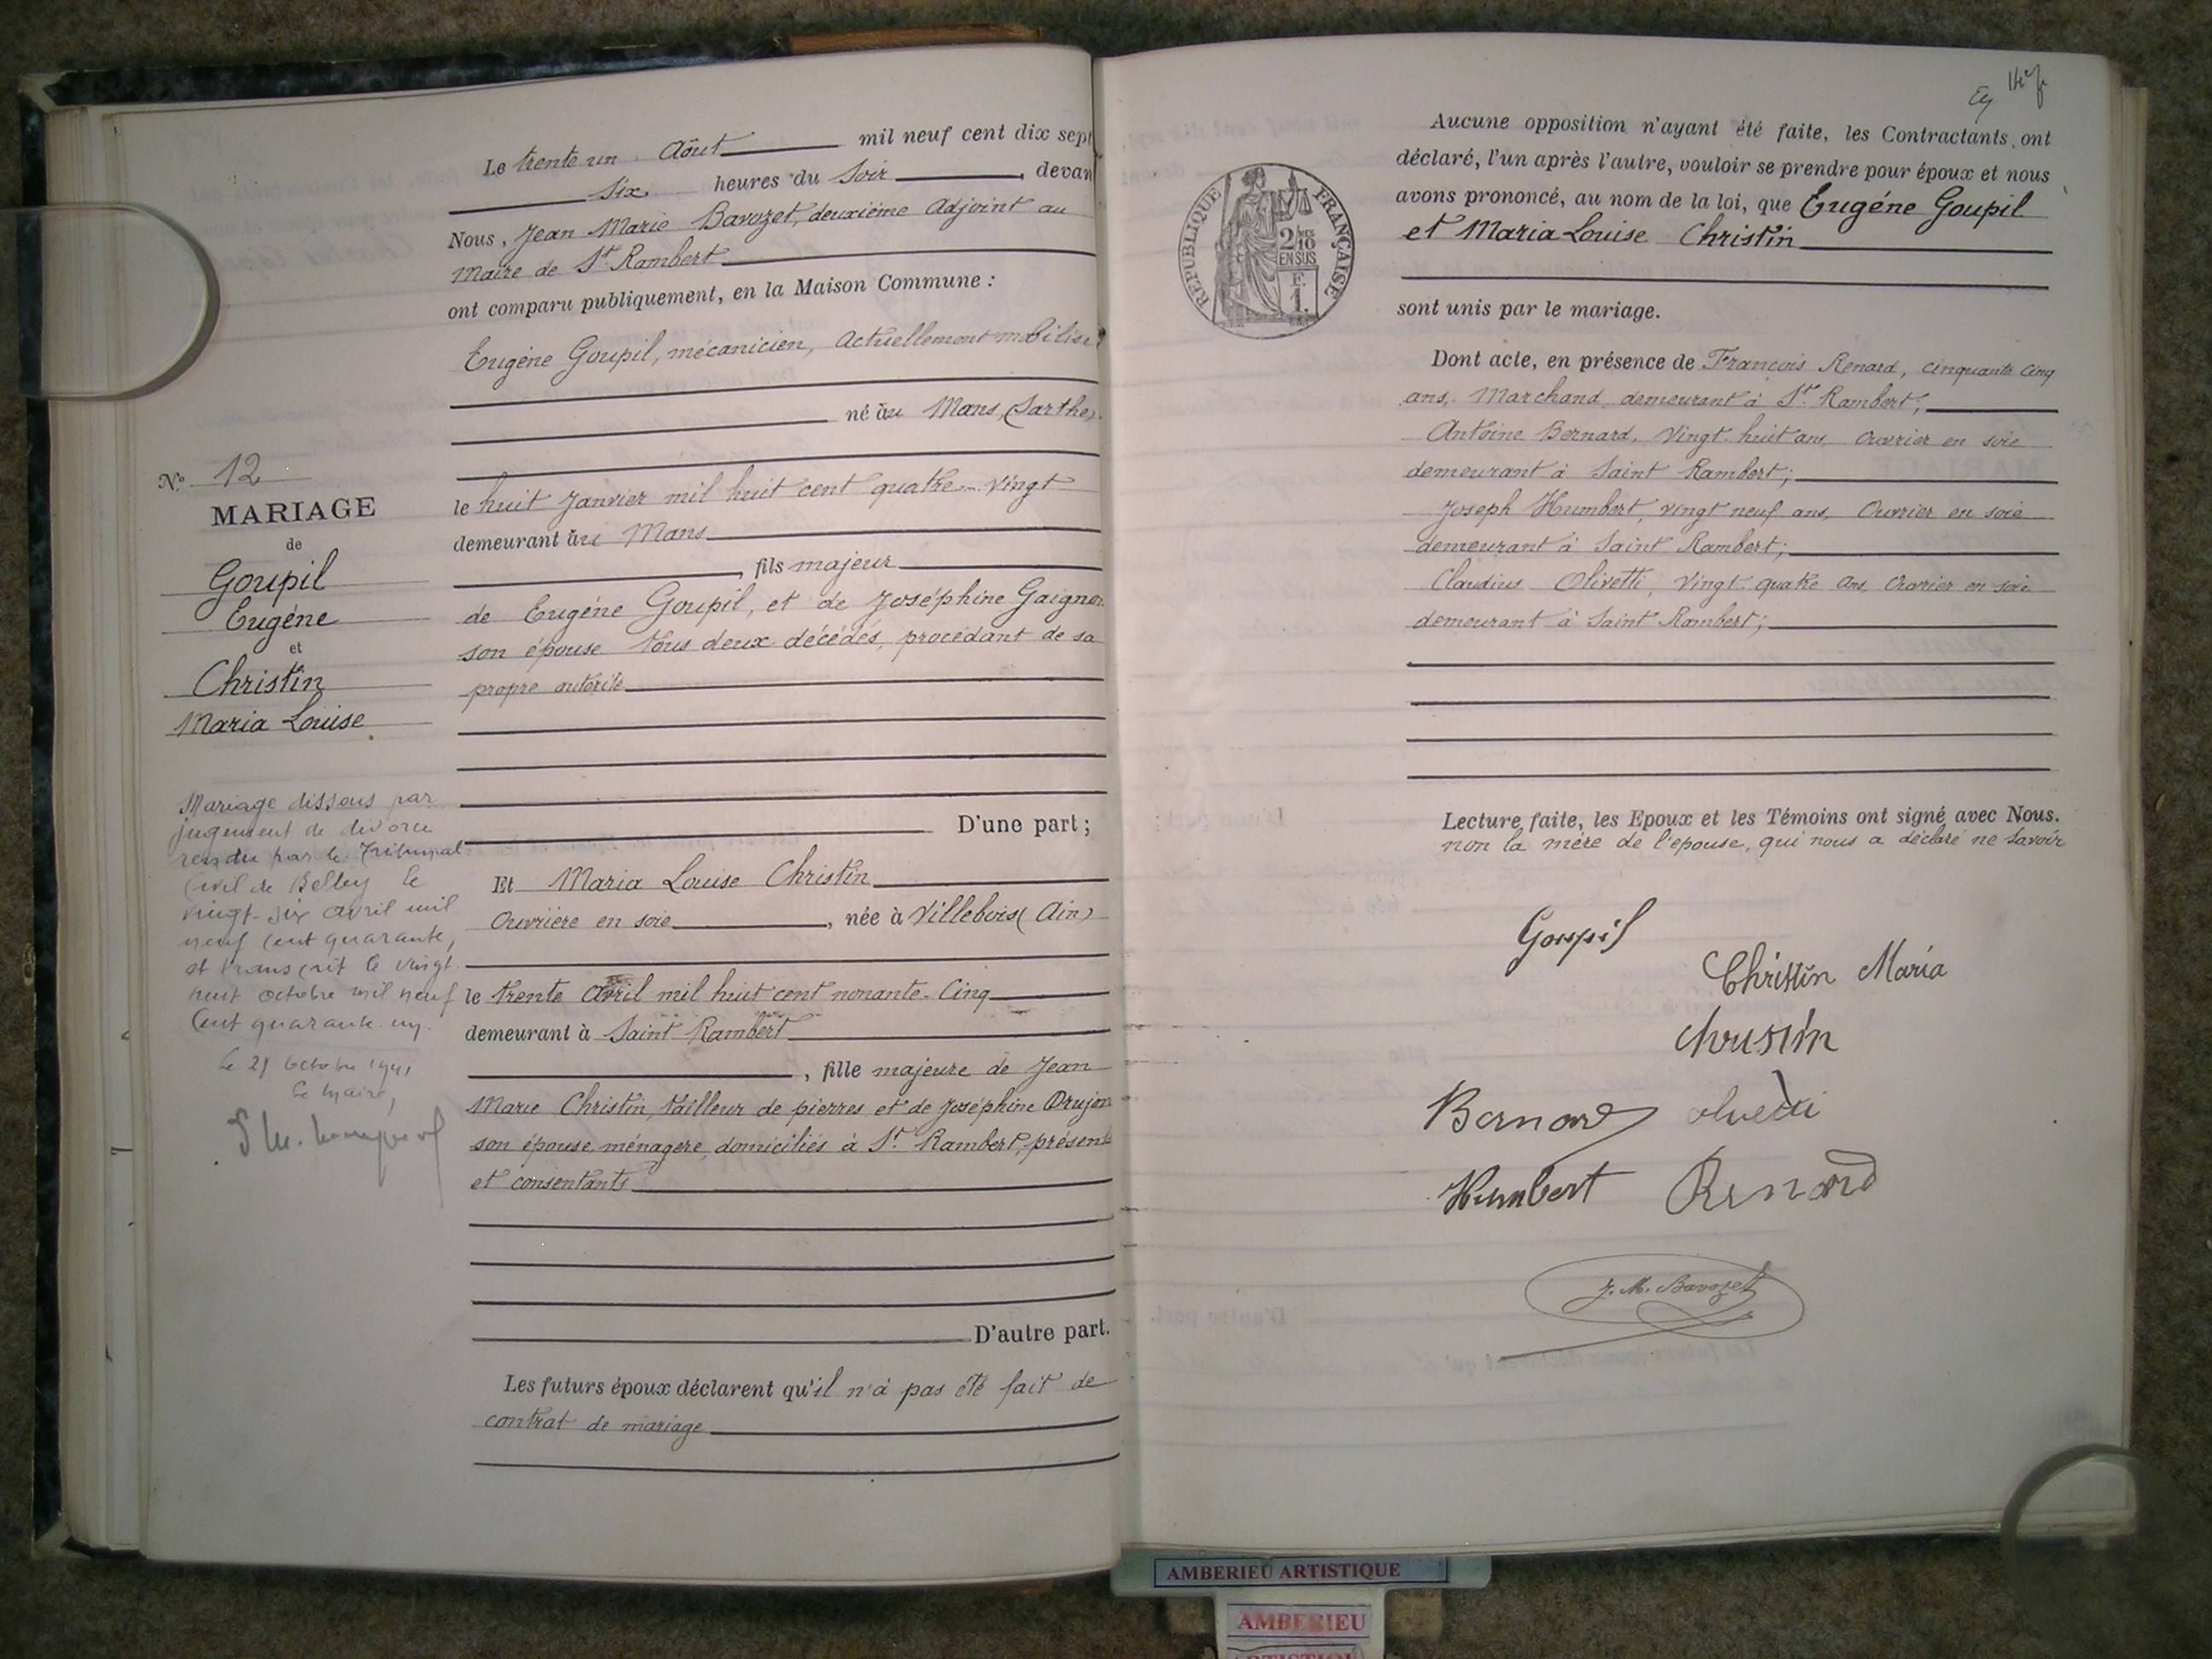 Le trente un Août mil neuf cent dix sept
six heures du Soir, devan
Nous, Jean Marie Bavozet, deuxième Adjoint au
Maire de St Rambert
ont comparu publiquement, en la Maison Commune :
Eugène Goupil, mécanicien, actuellement mobilisé
né au Mans (Sarthe)
le huit Janvier mil huit cent quatre-vingt
demeurant au Mans
, fils majeur
de Eugène Goupil, et de Joséphine Gaignon
son épouse tous deux décédés, procédant de sa
propre autorité
D'une part ;
N° 12
MARIAGE
de
Goupil
Eugène
et
Christin
Maria Louise
Mariage dissous par
jugement de divorce
rendu par le Tribunal
Civil de Belley le
vingt-six avril mil
neuf cent quarante,
et transcrit le vingt
huit octobre mil neuf
cent quarante un.
Le 29 octobre 1941
Le Maire,
Et Maria Louise Christin
Ouvrière en soie, née à Villebois (Ain)
le trente avril mil huit cent nonante-Cinq
demeurant à Saint Rambert
, fille majeure de Jean
Marie Christin, tailleur de pierres et de Joséphine Drujon
son épouse ménagère, domiciliés à St Rambert, présents
et consentants
D'autre part.
Les futurs époux déclarent qu'il n'a pas été fait de
contrat de mariage
Aucune opposition n'ayant été faite, les Contractants ont
déclaré, l'un après l'autre, vouloir se prendre pour époux et nous
avons prononcé, au nom de la loi, que Eugéne Goupil
et Maria Louise Christin
sont unis par le mariage.
RÉPUBLIQUE FRANÇAISE
2/10
EN SUS
F.
1.
Dont acte, en présence de François Renard, cinquante cinq
ans, Marchand, demeurant à St Rambert;
Antoine Bernard, vingt-huit ans, ouvrier en soie
demeurant à Saint Rambert;
Joseph Humbert, vingt neuf ans, Ouvrier en soie
demeurant à Saint Rambert;
Claudius Olivetti, vingt-quatre ans, Ouvrier en soie
demeurant à Saint Rambert;
Lecture faite, les Epoux et les Témoins ont signé avec Nous.
non la mère de l'épouse, qui nous a déclaré ne savoir
Goupil
Christin Maria
Christin
Bernard olivetti
Humbert Renard
J. M. Bavozet
AMBERIEU ARTISTIQUE
AMBERIEU
ARTISTIQUE